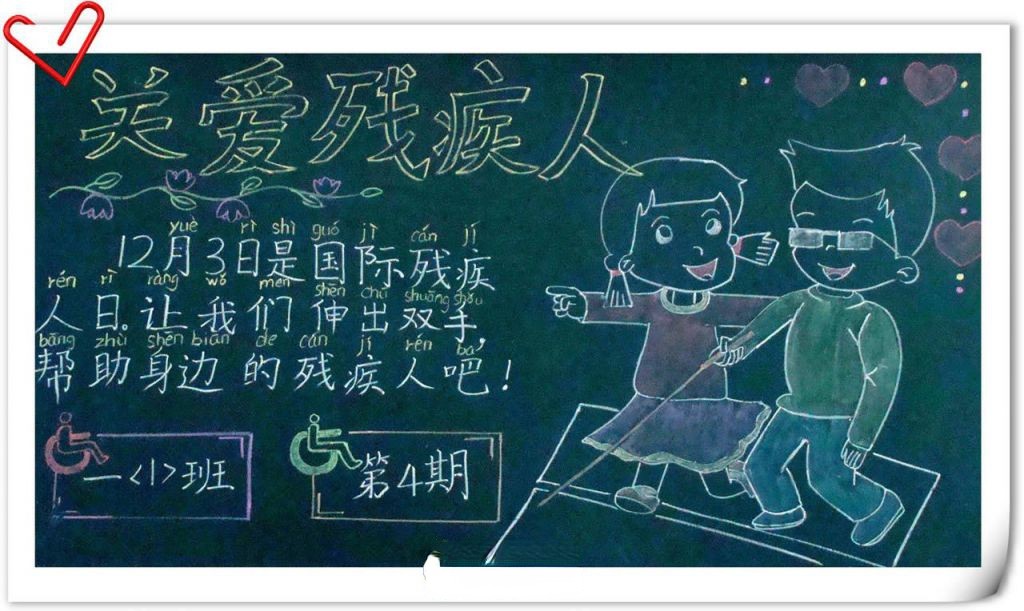 关爱残疾人
yuè rì shì guó jì cán jí
12月3日是国际残疾
rén rì ràng wǒ men shēn chū shuāng shǒu
人日。让我们伸出双手,
bāng zhù shēn biān de cán jí rén ba
帮助身边的残疾人吧!
一<1>班
第4期